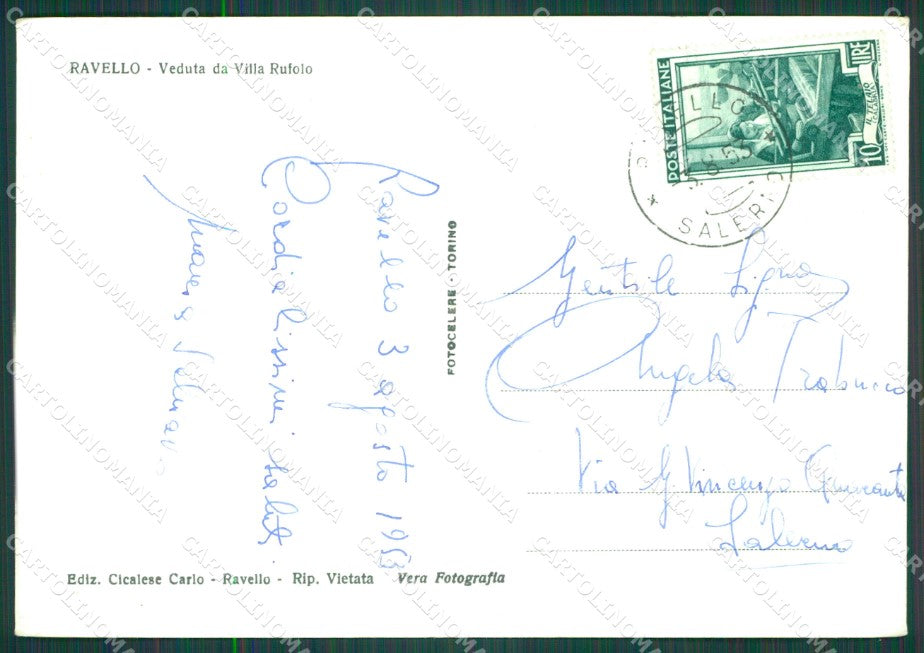 RAVELLO - Veduta da Villa Rufolo
POSTE ITALIANE
10 LIRE
SALERNO
Ravello 3 agosto 1953
Cordialissimi saluti
FOTOCELERE - TORINO
Gentile Sigra
Angela
Via G. Vincenzo Quaranta
Salerno
Ediz. Cicalese Carlo - Ravello - Rip. Vietata Vera Fotografia
CARTOLINOMANIA